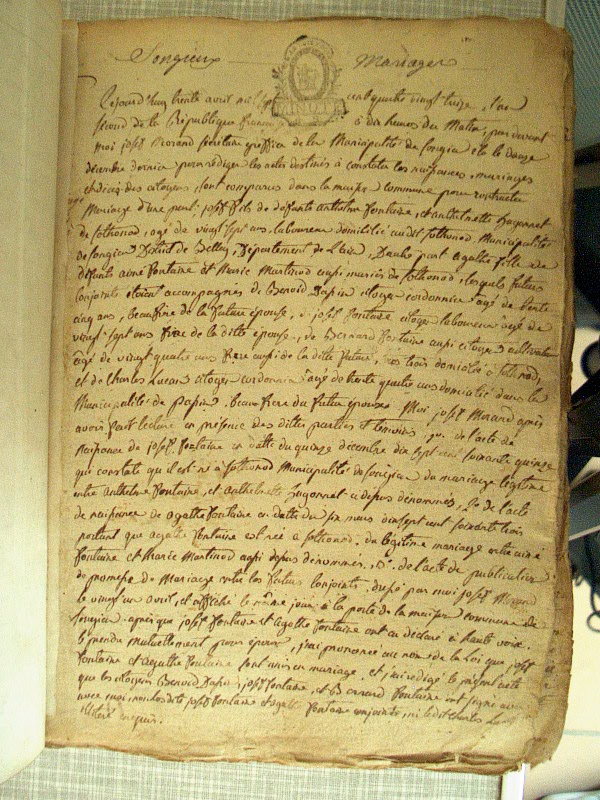 Songieu Mariages
Cejourd'huy trente avril mil sept cent quatre vingt treize, l'an
second de la République françoise à dix heures du Matin, par devant
moi joseph Morand secrétaire greffier de la Municipalité de Songieu élu le douze
décembre dernier pour rédiger les actes destinés à constater les naissances, mariages
et décès des citoyens, sont comparus dans la maison commune pour contracter
Mariage d'une part, joseph fils de défunts anthelme fontaine, et anthelmette
de sothonod, agé de vingt sept ans, laboureur domicilié audit sothonod Municipalité
de Songieu District de Belley, Département de l'ain, D'autre part agathe fille de
défunts aimé fontaine et Marie Martinod aussi mariés de sothonod, lesquels futurs
conjoints étoient accompagnés de Benoid Dapin citoyen cordonnier agé de trente
cinq ans, beaufrère de la future épouse, de josef fontaine citoyen laboureur agé de
vingt sept ans frère de la ditte épouse, de Bernard fontaine aussi citoyen cultivateur
agé de vingt quatre ans frère aussi de la ditte future, tous trois domicilié à sothonod,
et de Charles citoyen cordonnier agé de trente quatre ans domicilié dans la
Municipalité de beaufrère du futur époux Moi joseph Morand après
avoir fait lecture en présence des dittes parties et témoins, 1° de l'acte de
naissance de joseph fontaine en datte du quinze décembre dix sept cent soixante quinze
qui constate qu'il est né à sothonod Municipalité de Songieu du mariage légitime
entre anthelme fontaine, et anthelmette ci depus dénommés, 2° de l'acte
de naissance de agathe fontaine en datte du six mars dix sept cent soixante trois
portant que agathe fontaine est née à sothonod, du légitime mariage entre aimé
fontaine et Marie Martinod aussi depus dénommés, 3° de l'acte de publication
de promesse de Mariage entre les futurs conjoints, dressé par moi joseph Morand
le vingt un avril, et affiché le même jour à la porte de la maison commune de
Songieu après que joseph fontaine et agathe fontaine ont eu déclaré à haute voix
se prendre mutuellement pour époux, j'ai prononcé au nom de la loi que joseph
fontaine et agathe fontaine sont unis en mariage. et j'ai rédigé le présent acte
que les citoyens Benoid Dapin, joseph fontaine, et Bernard fontaine ont signé avec
avec moi, non lesdits joseph fontaine et agathe fontaine conjoints, ni ledit Charles
illitéré requis.